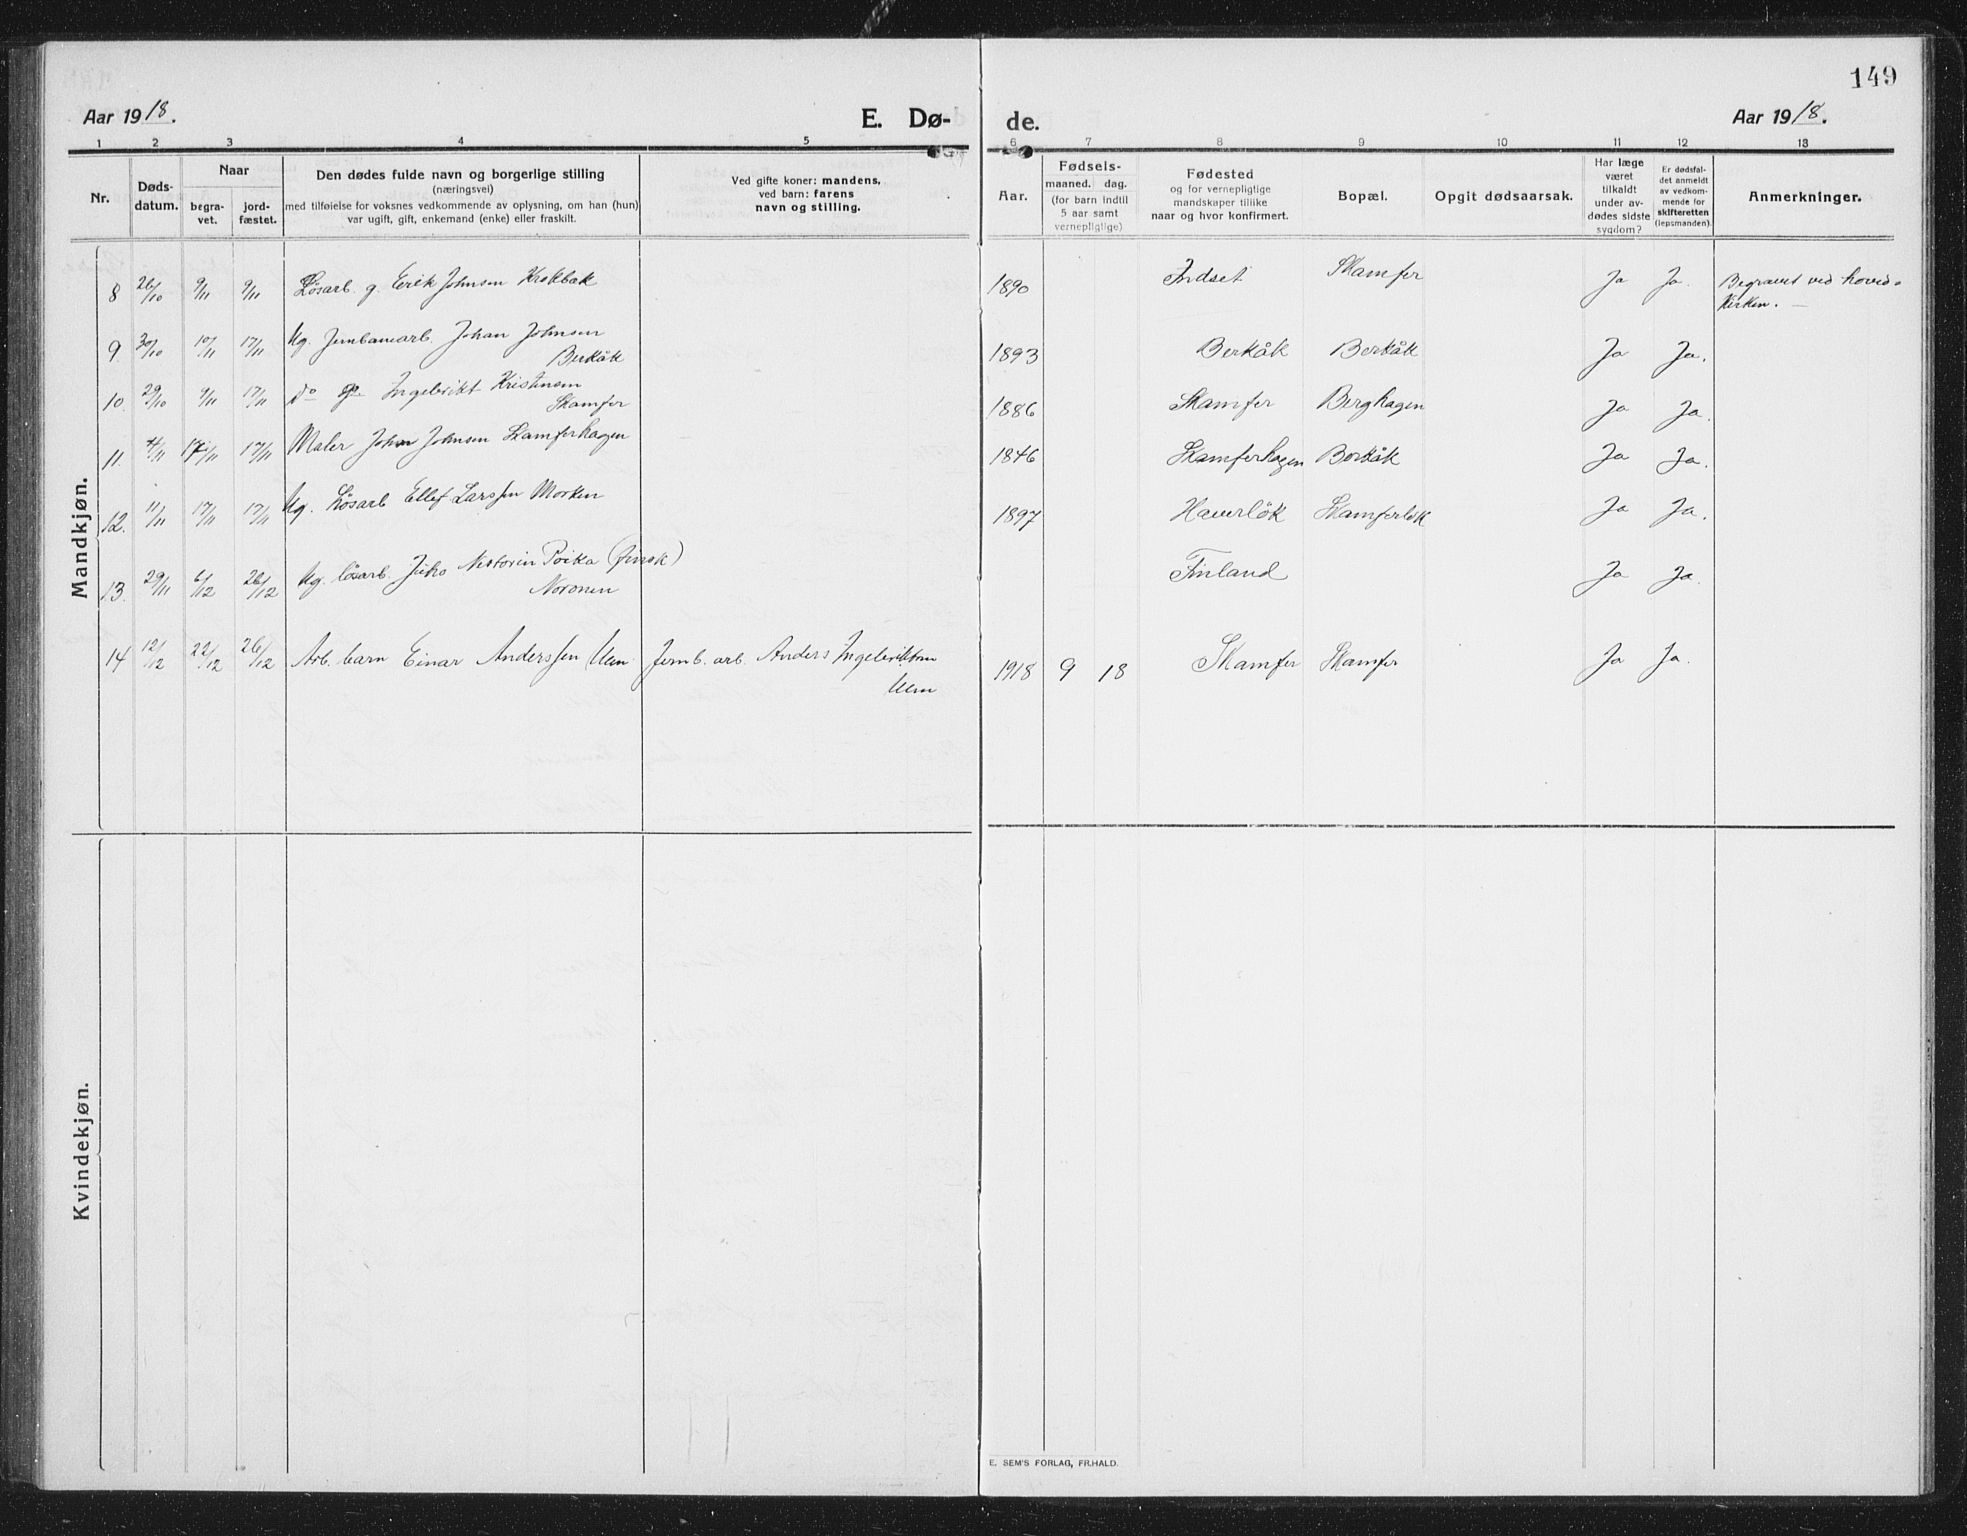 149
Aar 1918.
E. Dø-
de.
Aar 1918.
1 2 3 4 5 6 7 8 9 10 11 12 13
Nr.
Døds-
datum.
Naar
begra-
vet.
jord-
fæstet.
Den dødes fulde navn og borgerlige stilling
(næringsvei)
med tilføielse for voksnes vedkommende av oplysning, om han (hun)
var ugift, gift, enkemand (enke) eller fraskilt.
Ved gifte koner: mandens,
ved barn: farens
navn og stilling.
Aar.
Fødsels-
maaned. dag.
(for barn indtil
5 aar samt
vernepligtige)
Fødested
og for vernepligtige
mandskaper tillike
naar og hvor konfirmert.
Bopæl.
Opgit dødsaarsak.
Har læge
været
tilkaldt
under av-
dødes sidste
sygdom?
Er dødsfal-
det anmeldt
av vedkom-
mende for
skifteretten
(lepsmanden).
Anmerkninger.
Mandkjøn.
8 26/10 9/11 9/11 Løsarb. g. Erik Johnsen Krokbak 1890 Indset Skamfer Ja Ja. Begravet ved hoved-
kirken. —
9. 30/10 10/11 17/11 Ug. Jernbanearb. Johan Johnsen
Berkåk 1893 Berkåk Berkåk Ja Ja.
10. 29/10 9/11 17/11 do Ingebrikt Kristensen
Skamfer 1886 Skamfer Berghagen Ja Ja.
11. 4/11 17/11 17/11 Maler John Johnsen Skamferhagen 1846 Skamferhagen Berkåk Ja Ja.
12. 11/11 17/11 17/11 Ug. Løsarb Ellef Larssen Morken 1897 Haverløk Skamferløk Ja Ja.
13. 29/11 6/12 26/12 Ug. løsarb. Juho Nestorin Poika (finsk)
Noronen Finland Ja Ja.
14 12/12 22/12 26/12 Arb. barn Einar Anderssen Uem Jernb. arb. Anders Ingebriktsen
Uem 1918 9 18 Skamfer Skamfer Ja Ja.
Kvindekjøn.
E. SEM'S FORLAG, FR.HALD.